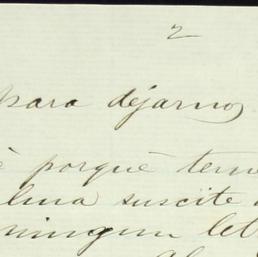 2
para dejarnos
è porquè teme
lma suscite
ningun let